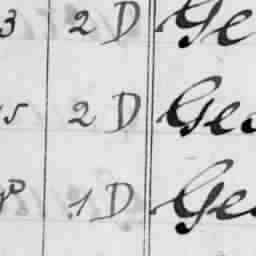 3 2 D Ge
2 D Geo
1 D Geo